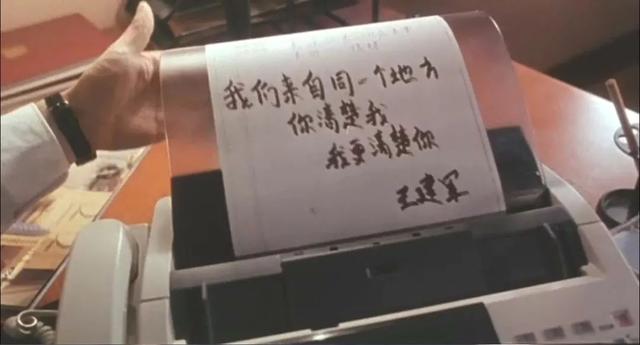 我们来自同一个地方
你清楚我
我更清楚你
王建军